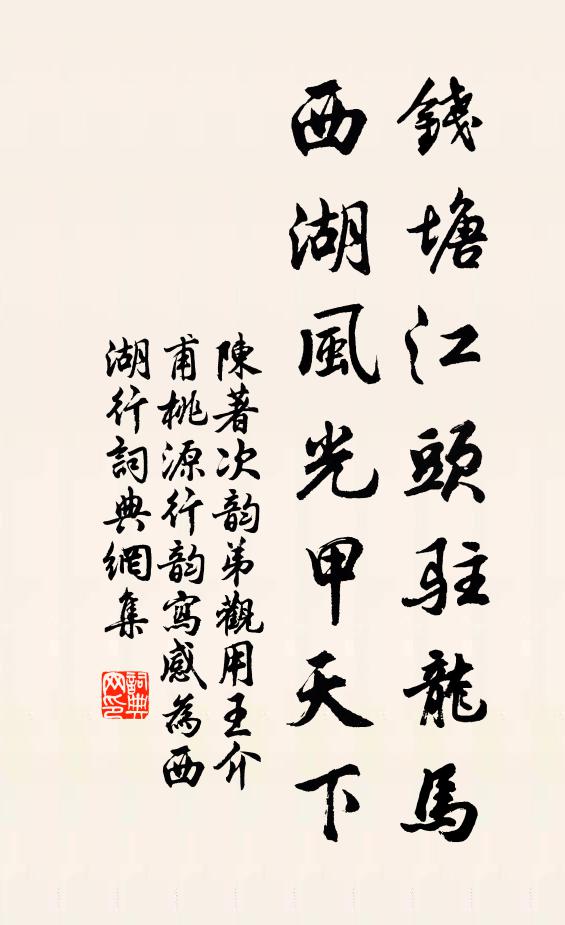 錢塘江頭駐龍馬
西湖風光甲天下
陳著次韵弟觀用王介
甫桃源行韵寫感為西
湖行詞典網集
詞典
网印